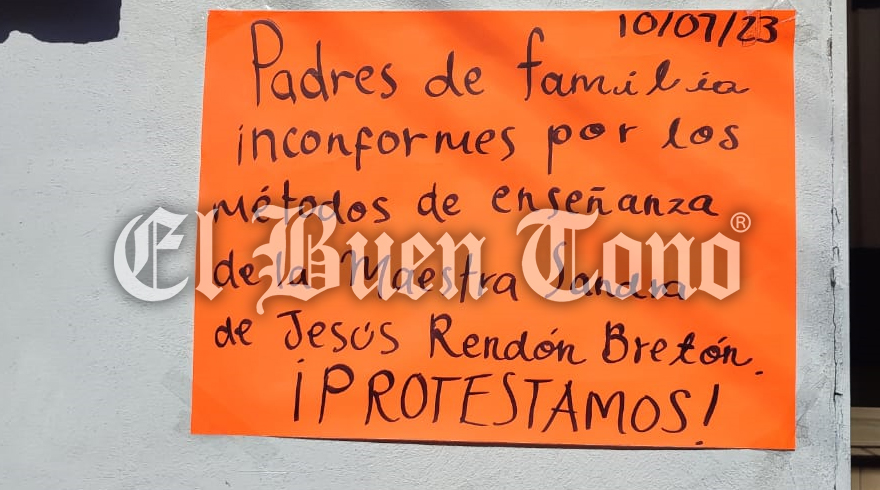 10/07/23
Padres de familia
inconformes por los
métodos de enseñanza
El Buen Tono®
de la Maestra Sandra
de Jesús Rendón Bretón.
¡PROTESTAMOS!